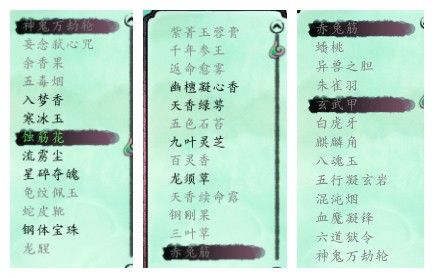 神鬼万劫轮
妄念弑心咒
余香果
五毒烟
入梦香
寒冰玉
蚀筋花
流雳尘
星碎夺魄
龟纹佩玉
蛇皮靴
钢体宝珠
龙腥
紫菁玉蓉膏
千年参王
返命愈雾
幽檀凝心香
天香绿萼
五色石苔
九叶灵芝
百灵香
龙须草
天香续命露
铜刚果
三叶草
赤鬼筋
赤鬼筋
蟠桃
异兽之胆
朱雀羽
玄武甲
白虎牙
麒麟角
八魂玉
五行凝玄岩
混沌烟
血魔凝锋
六道狱令
神鬼万劫轮